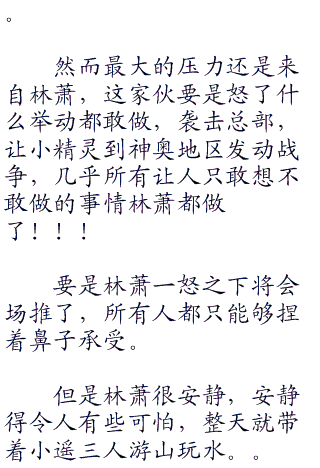 。
然而最大的压力还是来
自林萧，这家伙要是怒了什
么举动都敢做，袭击总部，
让小精灵到神奥地区发动战
争，几乎所有让人只敢想不
敢做的事情林萧都做
了！！！
要是林萧一怒之下将会
场推了，所有人都只能够捏
着鼻子承受。
但是林萧很安静，安静
得令人有些可怕，整天就带
着小遥三人游山玩水。。